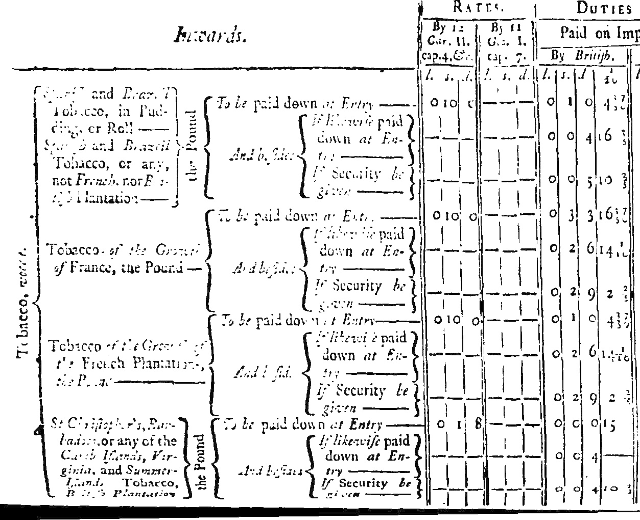 RATES. DUTIES
Inwards. By 12 By 11 Paid on Imp
Car. II. Geo. I. By British.
cap. 4, &c. cap. 7.
l. s. d. l. s. d. l. s. d.
Spanish and Brazil
Tobacco, in Pud-
ding, or Roll
Spanish and Brazil
Tobacco, or any,
not French, nor Bri-
tish Plantation
the Pound
To be paid down at Entry 0 10 0 0 1 0 4
And besides
If likewise paid
down at En-
try 0 0 4 16
If Security be
given 0 0 5 10
Tobacco, vocat.
Tobacco of the Growth
of France, the Pound
To be paid down at Entry 0 10 0 0 3 3 16
And besides
If likewise paid
down at En-
try 0 2 6 14
If Security be
given 0 2 9 2
Tobacco of the Growth of
the French Plantations,
the Pound
To be paid down at Entry 0 10 0 0 1 0 4
And besides
If likewise paid
down at En-
try 0 2 6
If Security be
given 0 2 9 2
St Christopher's, Bar-
badoes, or any of the
Carib Islands, Vir-
ginia, and Summer-
Islands Tobacco,
British Plantation
the Pound
To be paid down at Entry 0 1 8 0 0 0 15
And besides
If likewise paid
down at En-
try 0 0 4
If Security be
given 0 0 4 10